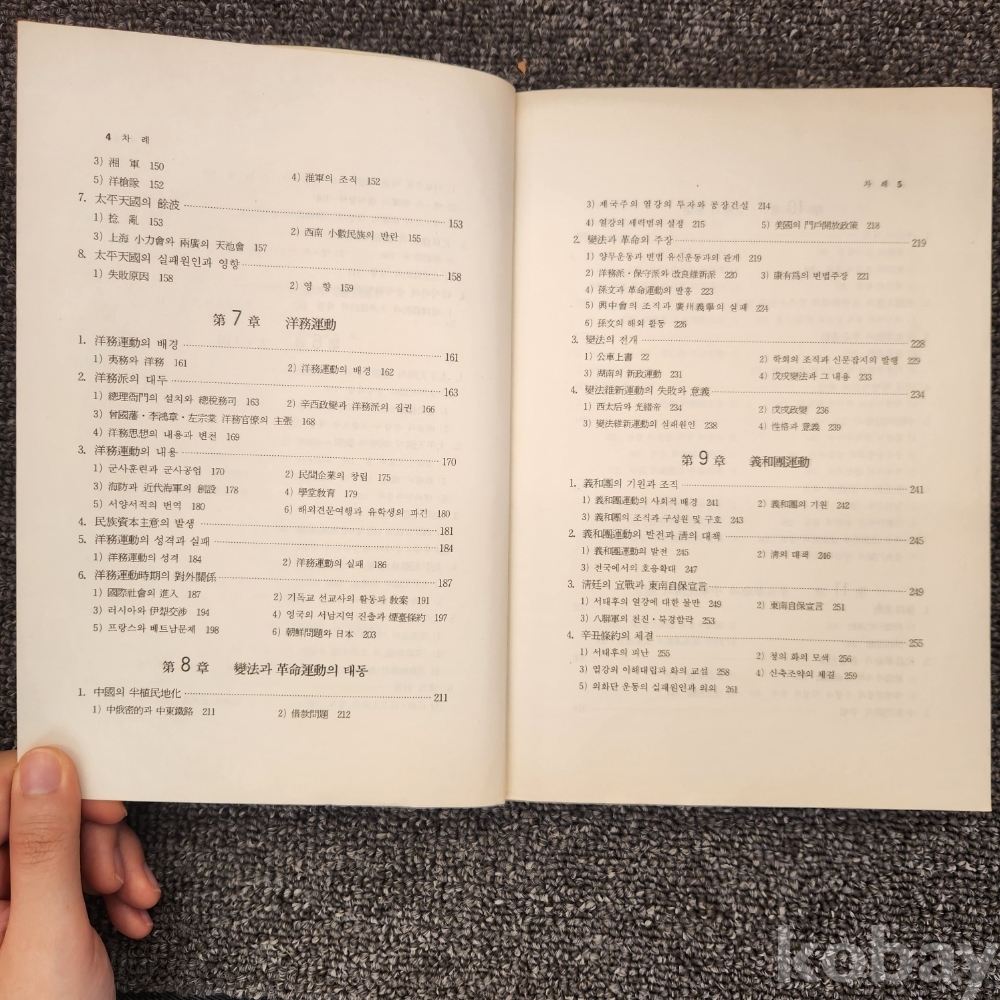 4 차 례
3) 湘 軍 150
4) 淮軍의 조직 152
5) 洋槍隊 152
7. 太平天國의 餘波 153
1) 捻 亂 153
2) 西南 小數民族의 반란 155
3) 上海 小刀會와 兩廣의 天地會 157
8. 太平天國의 실패원인과 영향 158
1) 失敗原因 158
2) 영 향 159
第 7 章 洋務運動
1. 洋務運動의 배경 161
1) 夷務와 洋務 161
2) 洋務運動의 배경 162
2. 洋務派의 대두 163
1) 總理衙門의 설치와 總稅務司 163
2) 辛酉政變과 洋務派의 집권 166
3) 曾國藩·李鴻章·左宗棠 洋務官僚의 主張 168
4) 洋務思想의 내용과 변천 169
3. 洋務運動의 내용 170
1) 군사훈련과 군사공업 170
2) 民間企業의 창립 175
3) 海防과 近代海軍의 創設 178
4) 學堂敎育 179
5) 서양서적의 번역 180
6) 해외견문여행과 유학생의 파견 180
4. 民族資本主意의 발생 181
5. 洋務運動의 성격과 실패 184
1) 洋務運動의 성격 184
2) 洋務運動의 실패 186
6. 洋務運動時期의 對外關係 187
1) 國際社會의 進入 187
2) 기독교 선교사의 활동과 敎案 191
3) 러시아와 伊犁交涉 194
4) 영국의 서남지역 진출과 煙臺條約 197
5) 프랑스와 베트남문제 198
6) 朝鮮問題와 日本 203
第 8 章 變法과 革命運動의 태동
1. 中國의 半植民地化 211
1) 中俄密約과 中東鐵路 211
2) 借款問題 212
차 례 5
3) 제국주의 열강의 투자와 공장건설 214
4) 열강의 세력범의 설정 215
5) 美國의 門戶開放政策 218
2. 變法과 革命의 주장 219
1) 양무운동과 변법 유신운동과의 관계 219
2) 洋務派·保守派와 改良維新派 220
3) 康有爲의 변법주장 221
4) 孫文과 革命運動의 발흥 223
5) 興中會의 조직과 廣州義擧의 실패 224
6) 孫文의 해외 활동 226
3. 變法의 전개 228
1) 公車上書 22
2) 학회의 조직과 신문잡지의 발행 229
3) 湖南의 新政運動 231
4) 戊戌變法과 그 내용 233
4. 變法維新運動의 失敗와 意義 234
1) 西太后와 光緖帝 234
2) 戊戌政變 236
3) 變法維新運動의 실패원인 238
4) 性格과 意義 239
第 9 章 義和團運動
1. 義和團의 기원과 조직 241
1) 義和團運動의 사회적 배경 241
2) 義和團의 기원 242
3) 義和團의 조직과 구성원 및 구호 243
2. 義和團運動의 발전과 淸의 대책 245
1) 義和團運動의 발전 245
2) 淸의 대책 246
3) 전국에서의 호응확대 247
3. 淸廷의 宣戰과 東南自保宣言 249
1) 서태후의 열강에 대한 불만 249
2) 東南自保宣言 251
3) 八聯軍의 천진·북경함락 253
4. 辛丑條約의 체결 255
1) 서태후의 피난 255
2) 청의 화의 모색 256
3) 열강의 이해대립과 화의 교섭 258
4) 신축조약의 체결 259
5) 의화단 운동의 실패원인과 의의 261
kobay